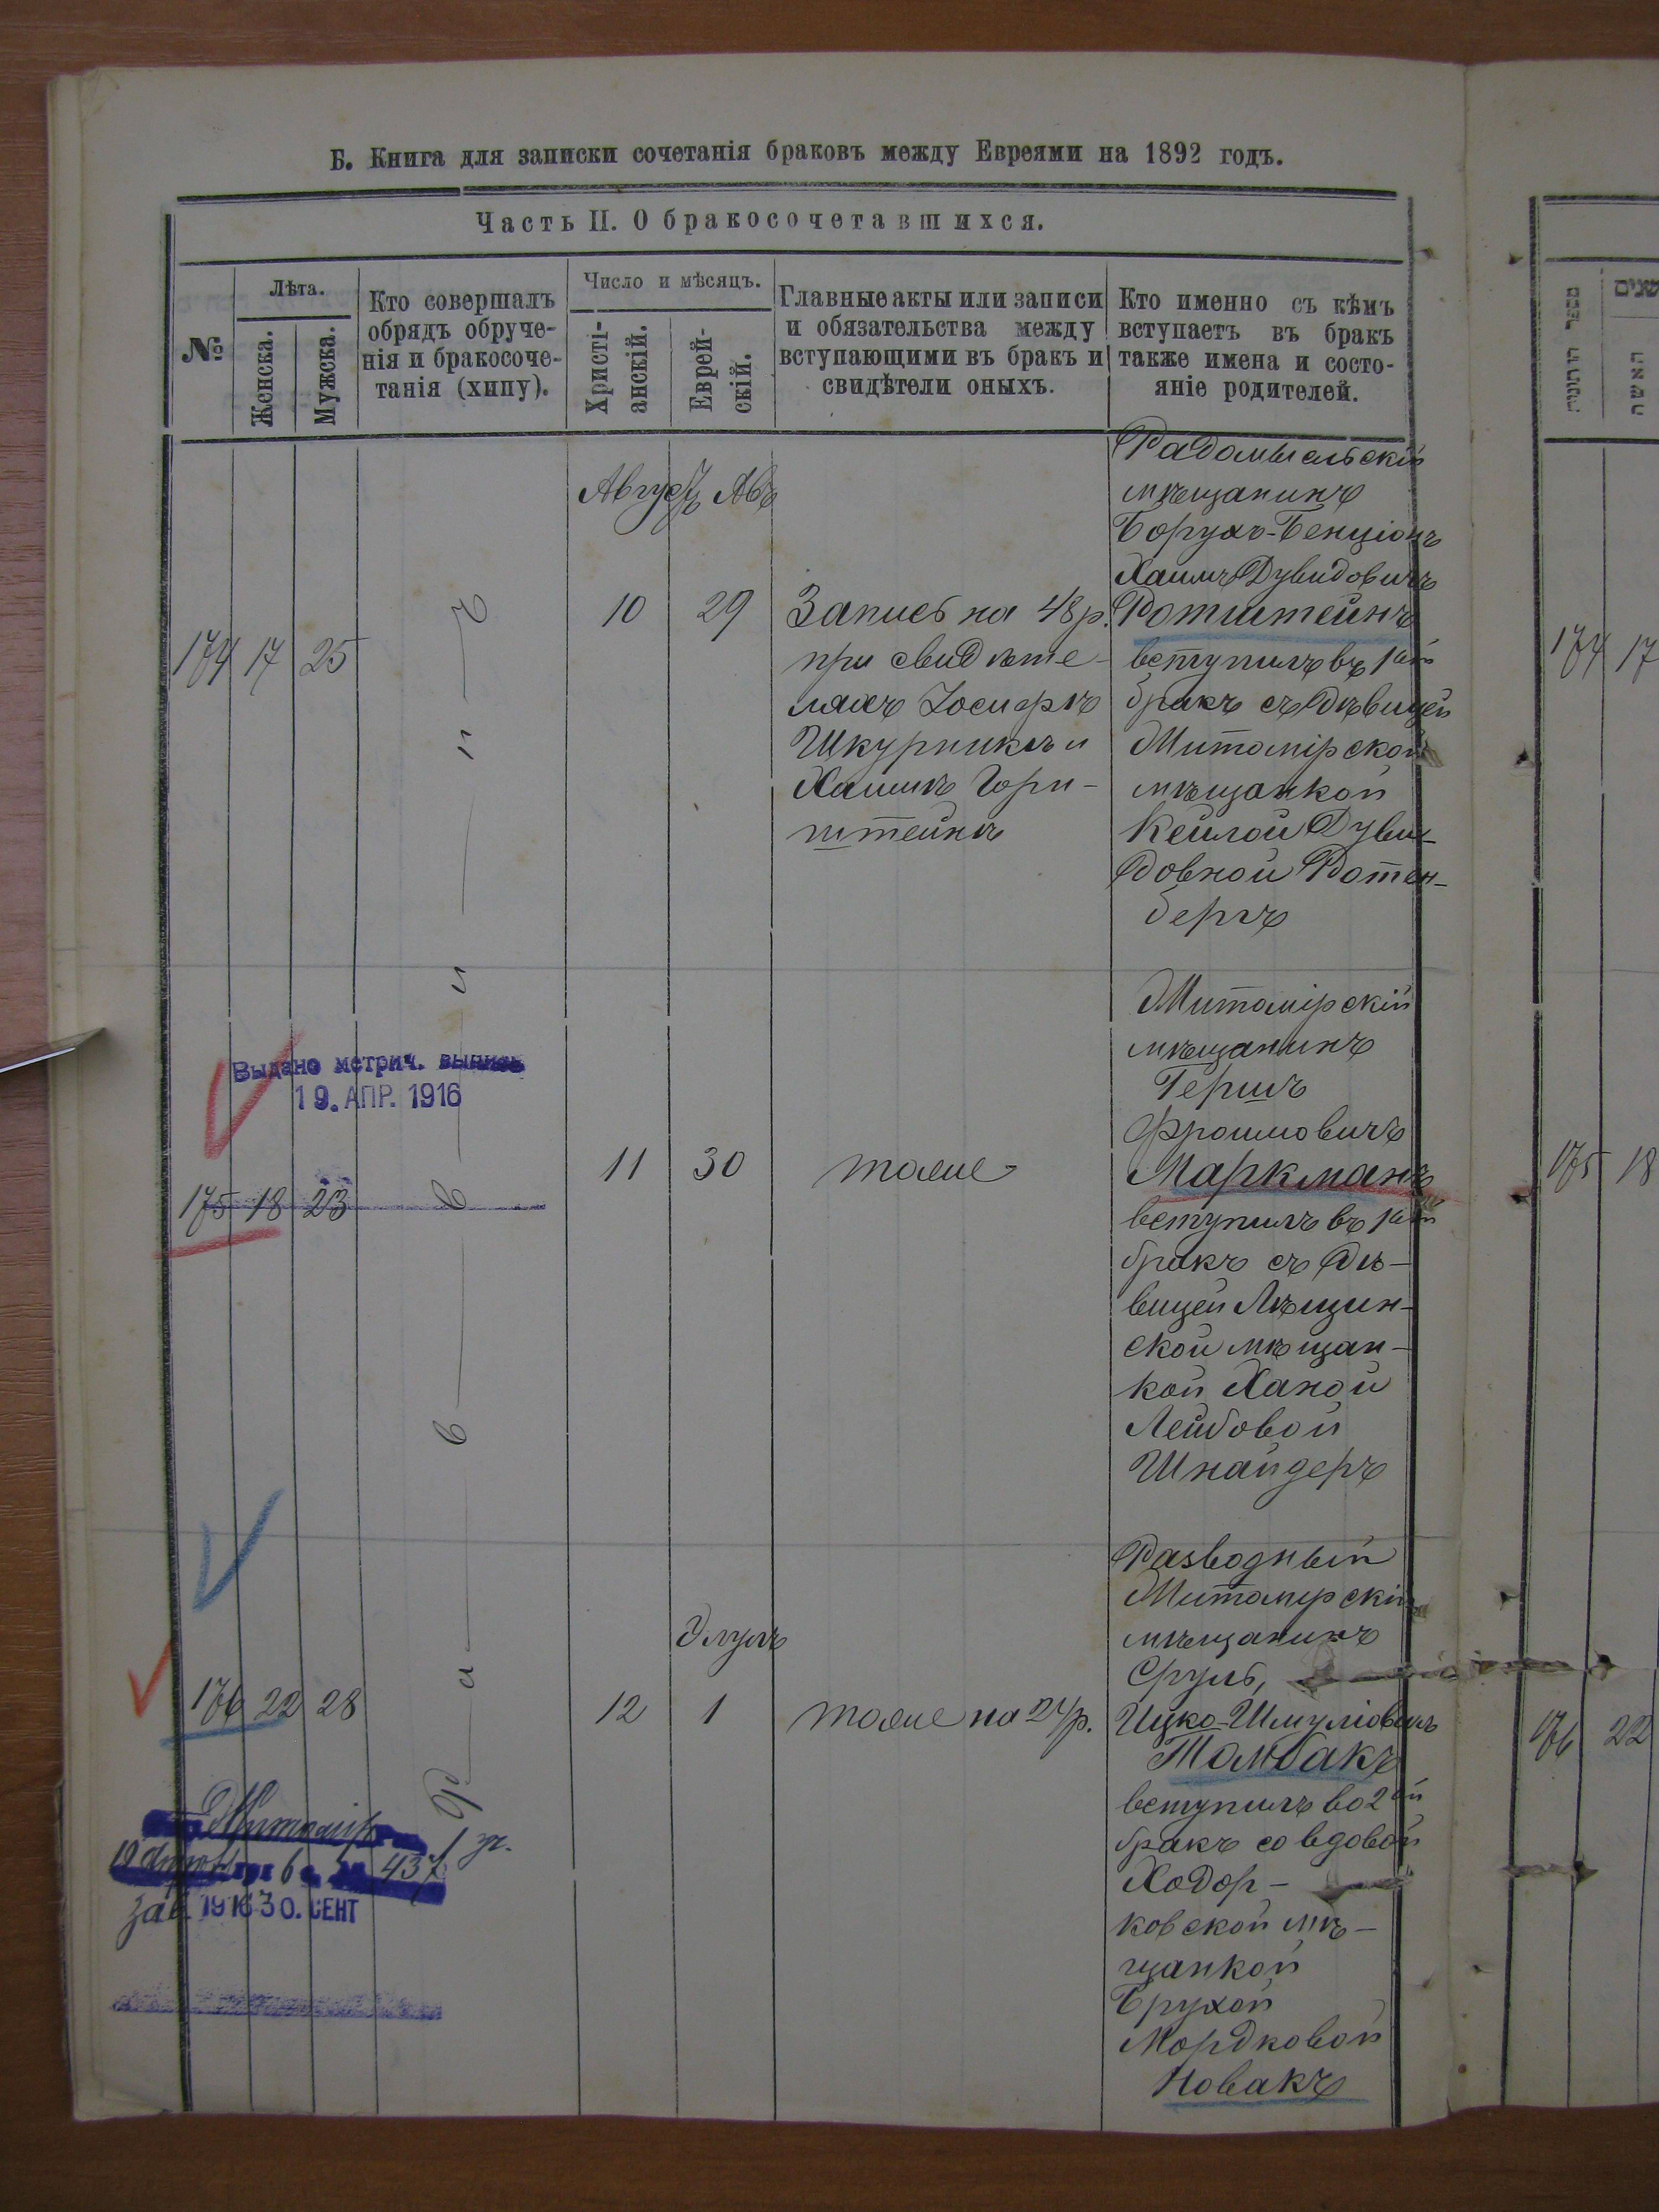 Б. Книга для записки сочетанія браковъ между Евреями на 1892 годъ.
Часть II. О бракосочетавшихся.
№
Лѣта.
Женска.
Мужска.
Кто совершалъ
обрядъ обруче-
нія и бракосоче-
танія (хипу).
Число и мѣсяцъ.
Христі-
анскій.
Еврей-
скій.
Главные акты или записи
и обязательства между
вступающими въ бракъ и
свидѣтели оныхъ.
Кто именно съ кѣмъ
вступаетъ въ бракъ
также имена и состо-
яніе родителей.
Раввинъ
Августъ Авъ
174 17 25
10 29
Запись на 48 р.
при свидѣте-
ляхъ Іосифѣ
Шкурникъ и
Хаимѣ Горн-
штейнъ
Радомысльскій
мѣщанинъ
Борухъ-Бенціонъ
Хаимъ Дувидовичъ
Ротштейнъ
вступилъ въ 1ый
бракъ съ дѣвицей
Житомірской
мѣщанкой
Кейлой Дуви-
довной Ротен-
бергъ
Выдано метрич. выпись
19. АПР. 1916
175 18 23
11 30
тоже
Житомірскій
мѣщанинъ
Гершъ
Фроимовичъ
Маркманъ
вступилъ въ 1ый
бракъ съ дѣ-
вицей Лѣщин-
ской мѣщан-
кой Ханой
Лейбовой
Шнайдеръ
Элулъ
176 22 28
12 1
тоже на 24 р.
Разводный
Житомирскій
мѣщанинъ
Сруль,
Ицко-Шмуліовичъ
Томбакъ
вступилъ во 2ой
бракъ со вдовой
Ходор-
ковской мѣ-
щанкой
Брухой
Мордковой
Новакъ
Житомір
437
1916 30. СЕНТ
מספר הראשון
שנים
האשה
174 17
175 18
176 22